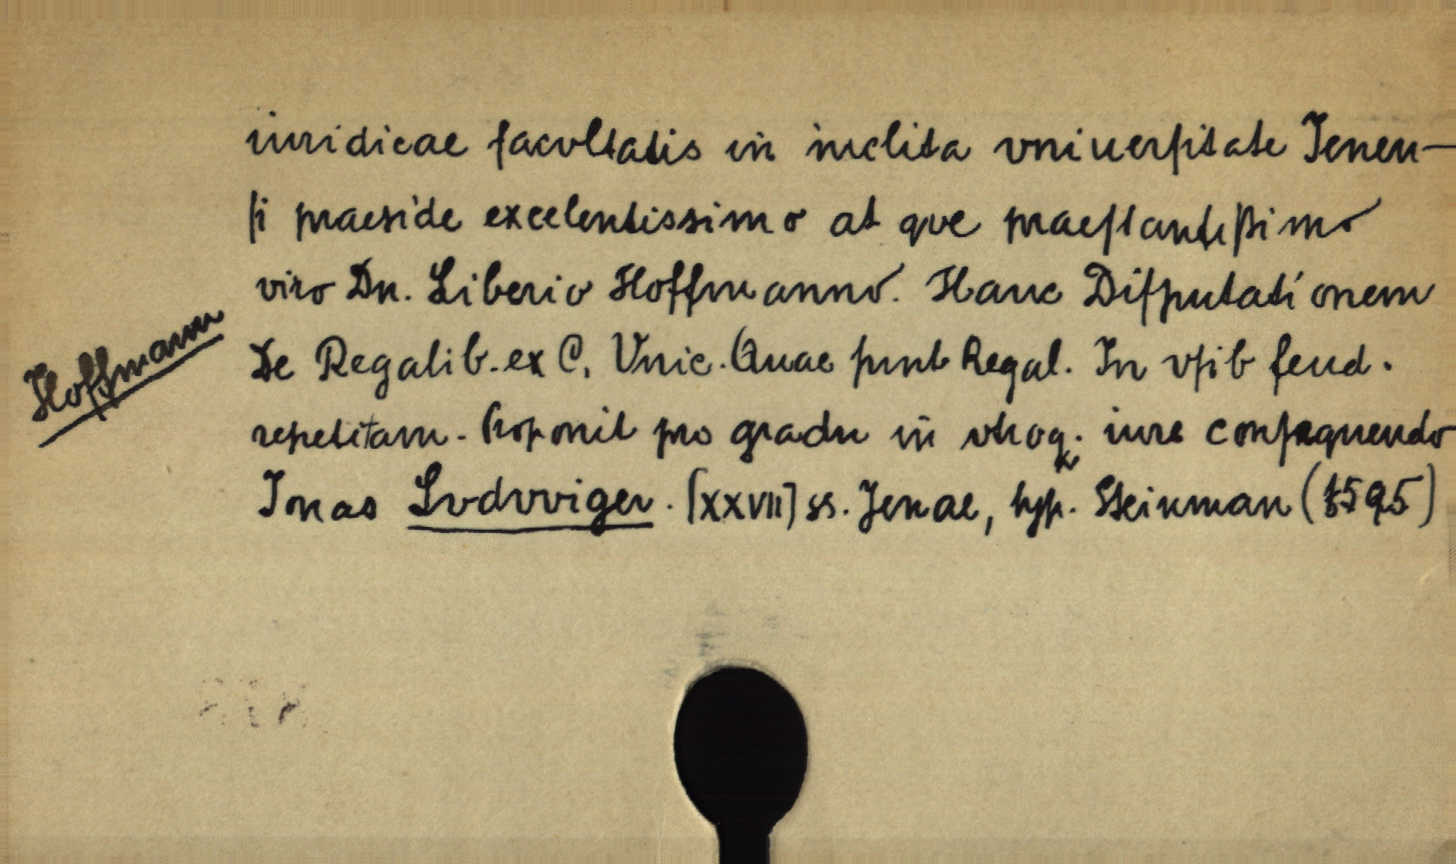 iuridicae facvltatis in inclita vniuerſitate Jenen-
ſi praeside excelentissimo at qve praeſtantißimo
viro Dn. Liberio Hoffmanno. Hanc Diſputationem
De Regalib. ex C. Vnic. Quae ſunt Regal. In vſib feud.
Hoffmann
repetitam. Proponit pro gradu in vtroq; iure conſequendo
Jonas Lvdvviger. [XXVII] ss. Jenae, typ. Steinman (1595)